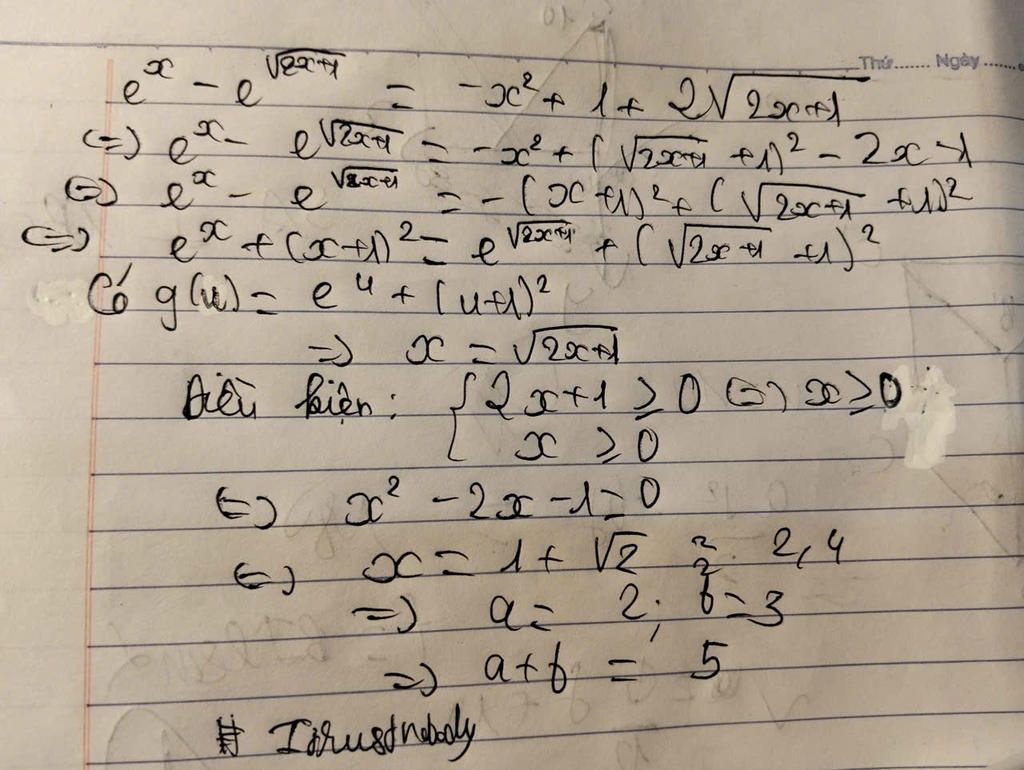 Thứ....... Ngày.......
e^x - e^√(2x+1) = -x² + 1 + 2√(2x+1)
(=) e^x - e^√(2x+1) = -x² + (√(2x+1) + 1)² - 2x - 1
(=) e^x - e^√(2x+1) = -(x+1)² + (√(2x+1) + 1)²
(=) e^x + (x+1)² = e^√(2x+1) + (√(2x+1) + 1)²
Có g(u) = e^u + (u+1)²
=) x = √(2x+1)
Điều kiện: { 2x+1 ≥ 0 (=) x ≥ 0
x ≥ 0
(=) x² - 2x - 1 = 0
(=) x = 1 + √2 ≈ 2,4
=) a = 2; b = 3
=) a+b = 5
# Itrustnobody